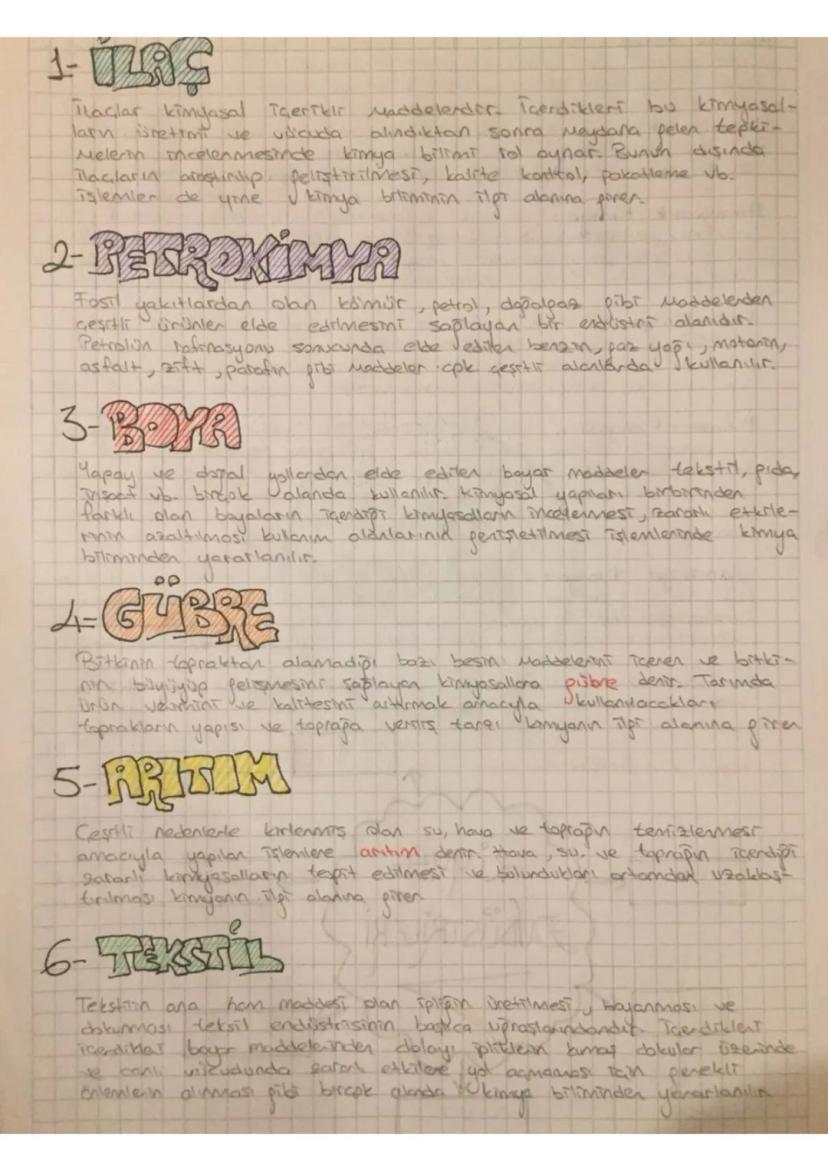 1- İLAÇ
İlaçlar kimyasal içerikli maddelerdir. İçerdikleri bu kimyasal-
ların üretimi ve vücuda alındıktan sonra meydana gelen tepki-
melerin incelenmesinde kimya bilimi rol oynar. Bunun dışında
ilaçların araştırılıp geliştirilmesi, kalite kontrol, paketleme vb.
işlemler de yine kimya biliminin ilgi alanına girer.
2- PETROKİMYA
Fosil yakıtlardan olan kömür, petrol, doğalgaz gibi maddelerden
çeşitli ürünler elde edilmesini sağlayan bir endüstri alanıdır.
Petrolün rafinasyonu sonucunda elde edilen benzin, gaz yağı, motorin,
asfalt, zift, parafin gibi maddeler çok çeşitli alanlarda kullanılır.
3- BOYA
Yapay ve doğal yollardan elde edilen boyar maddeler tekstil, gıda,
inşaat vb. birçok alanda kullanılır. Kimyasal yapıları birbirinden
farklı olan boyaların içerdiği kimyasalların incelenmesi, zararlı etkile-
rinin azaltılması kullanım alanlarının genişletilmesi işlemlerinde kimya
biliminden yararlanılır.
4- GÜBRE
Bitkinin topraktan alamadığı bazı besin maddelerini içeren ve bitki-
nin büyüyüp gelişmesini sağlayan kimyasallara gübre denir. Tarımda
ürün verimini ve kalitesini artırmak amacıyla kullanılacakları
toprakların yapısı ve toprağa veriliş tarzı kimyanın ilgi alanına girer
5- ARITIM
Çeşitli nedenlerle kirlenmiş olan su, hava ve toprağın temizlenmesi
amacıyla yapılan işlemlere arıtım denir. Hava, su, ve toprağın içerdiği
zararlı kimyasalların tespit edilmesi ve bulundukları ortamdan uzaklaş-
tırılması kimyanın ilgi alanına girer
6- TEKSTİL
Tekstilin ana ham maddesi olan ipliğin üretilmesi, boyanması ve
dokunması teksil endüstrisinin başlıca uğraşlarındandır. İçerdikleri
içerdikler boyar maddelerinden dolayı ipliklerin kumaş dokuları üzerinde
ve canlı vücudunda zararlı etkilere yol açmaması için gerekli
önlemlerin alınması gibi birçok alanda kimya biliminden yararlanılır